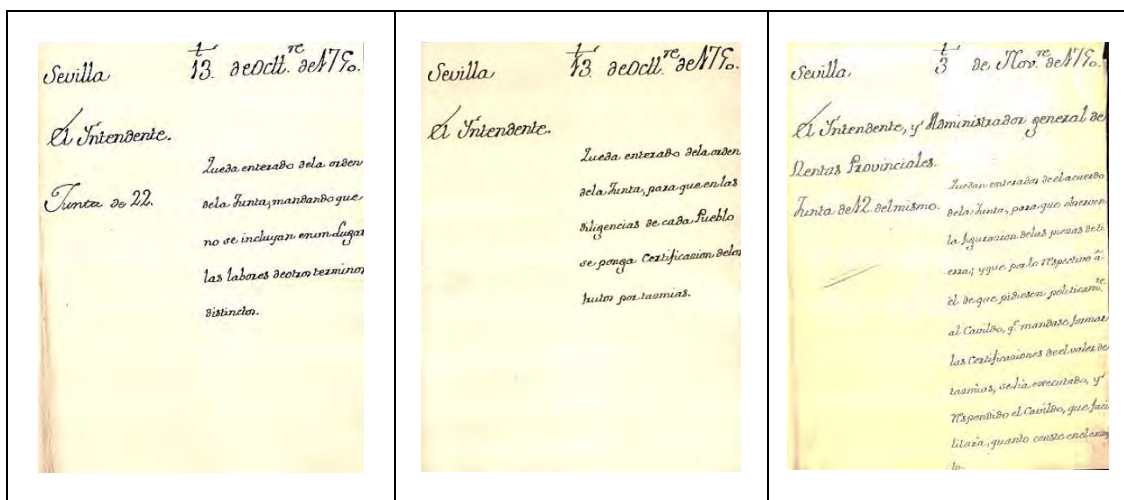 Sevilla
13. de Oct.re de 1750.
El Intendente.
Queda enterado dela orden
Junta de 22.
dela Junta, mandando que
no se incluyan en un Lugar
las labores de otros terminos
distinctos.
Sevilla
13. de Oct.re de 1750.
El Intendente.
Queda enterado dela orden
dela Junta, para que en las
diligencias de cada Pueblo
se ponga Certificacion delos
frutos por tazmias.
Sevilla,
3 de Nov.re de 1750.
El Intendente, y Administrador general de
Rentas Provinciales.
Quedan enterados de el acuerdo
Junta de 12. del mismo.
dela Junta, para que observen
la figurazion delas piezas de ti
erra; y que por lo respectivo â
el de que pidiesen politicam.te
al Cavildo, q.e mandase formar
las Certificaciones de el valor de
tazmias, se ha executado, y
respondido el Cavildo, que faci
litaria, quanto conste en el